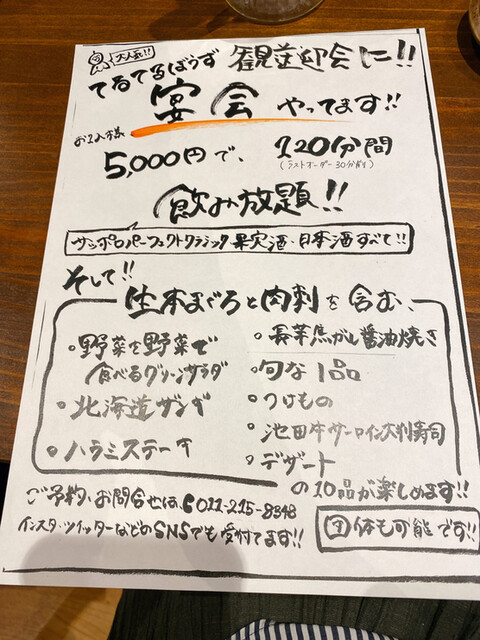 大人気!!
てるてるぼうず 観迎会に!!
宴会 やってます!!
お1人様
5,000円で、120分間
(ラストオーダー30分前)
飲み放題!!
サッポロパーフェクトクラシック 果実酒・日本酒すべて!!
そして!!
生本まぐろと肉刺を含む、
・野菜を野菜で
食べるグリーンサラダ
・北海道ザンギ
・ハラミステーキ
・長芋焦がし醤油焼き
・旬な1品
・つけもの
・池田牛サーロイン大判寿司
・デザート
の10品が楽しめます!!
ご予約、お問合せは、011-215-8348
インスタ・ツイッターなどのSNSでも受付てます!!
団体も可能です!!